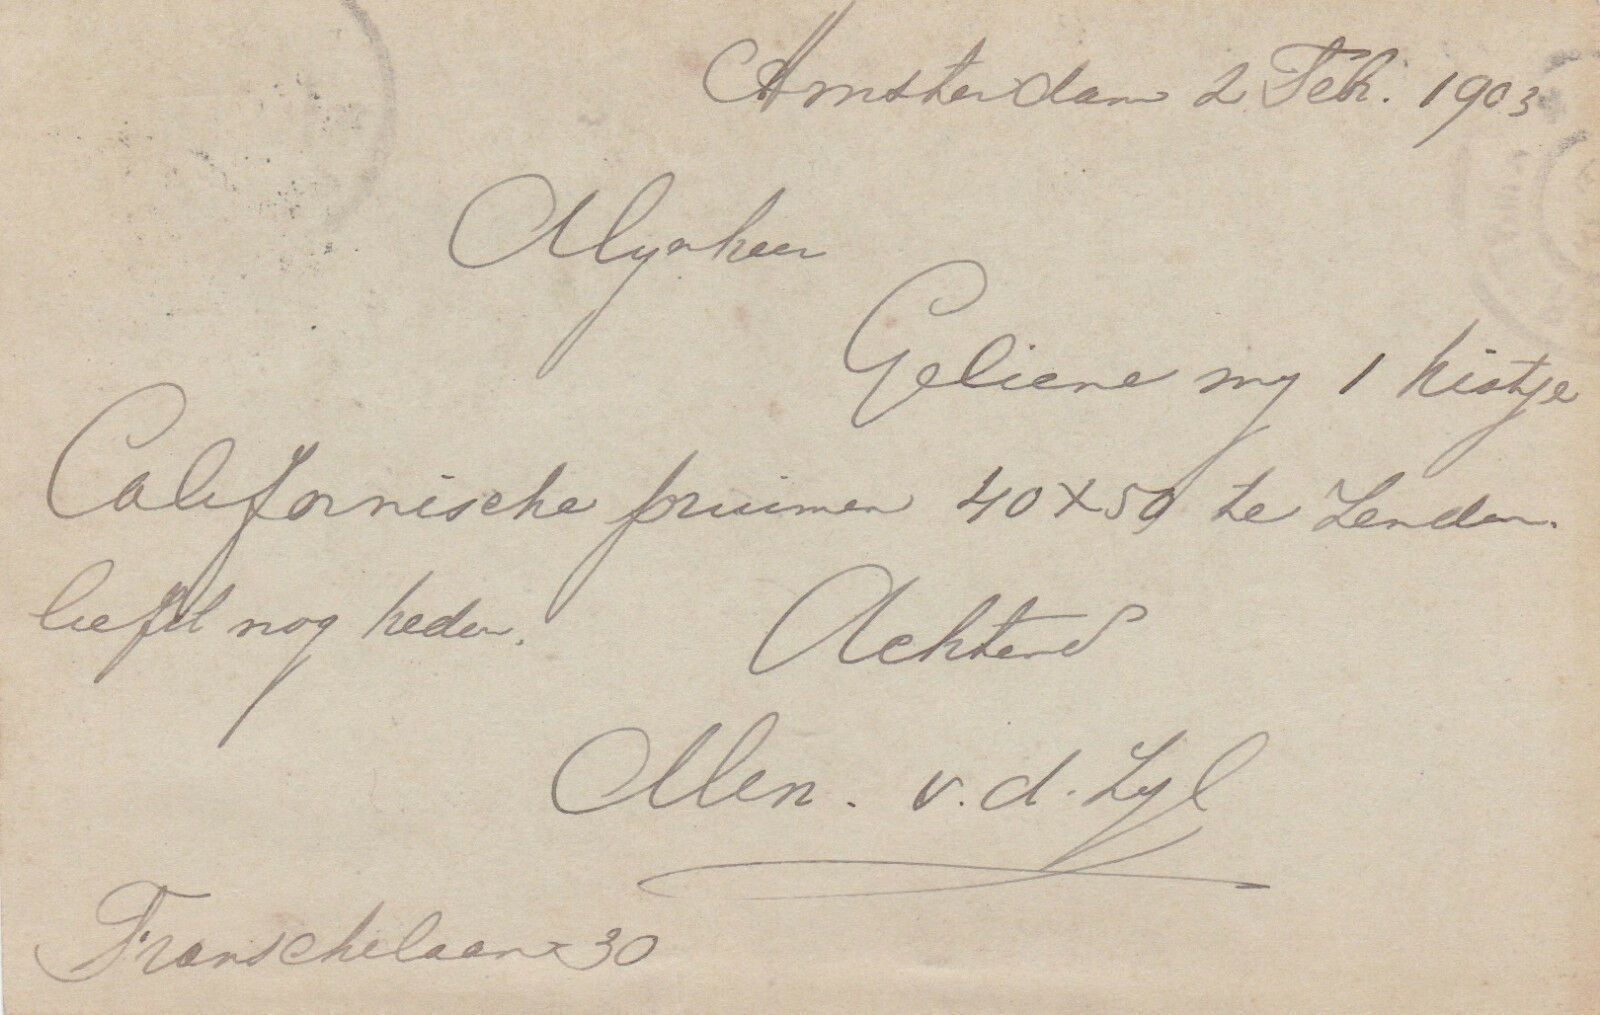 Amsterdam 2 Feb. 1903
Mynheer
Gelieve my 1 kistje
Californische pruimen 40x50 te Zenden.
liefst nog heden.
Achtend
v. d. Zyl
Franschelaan 30